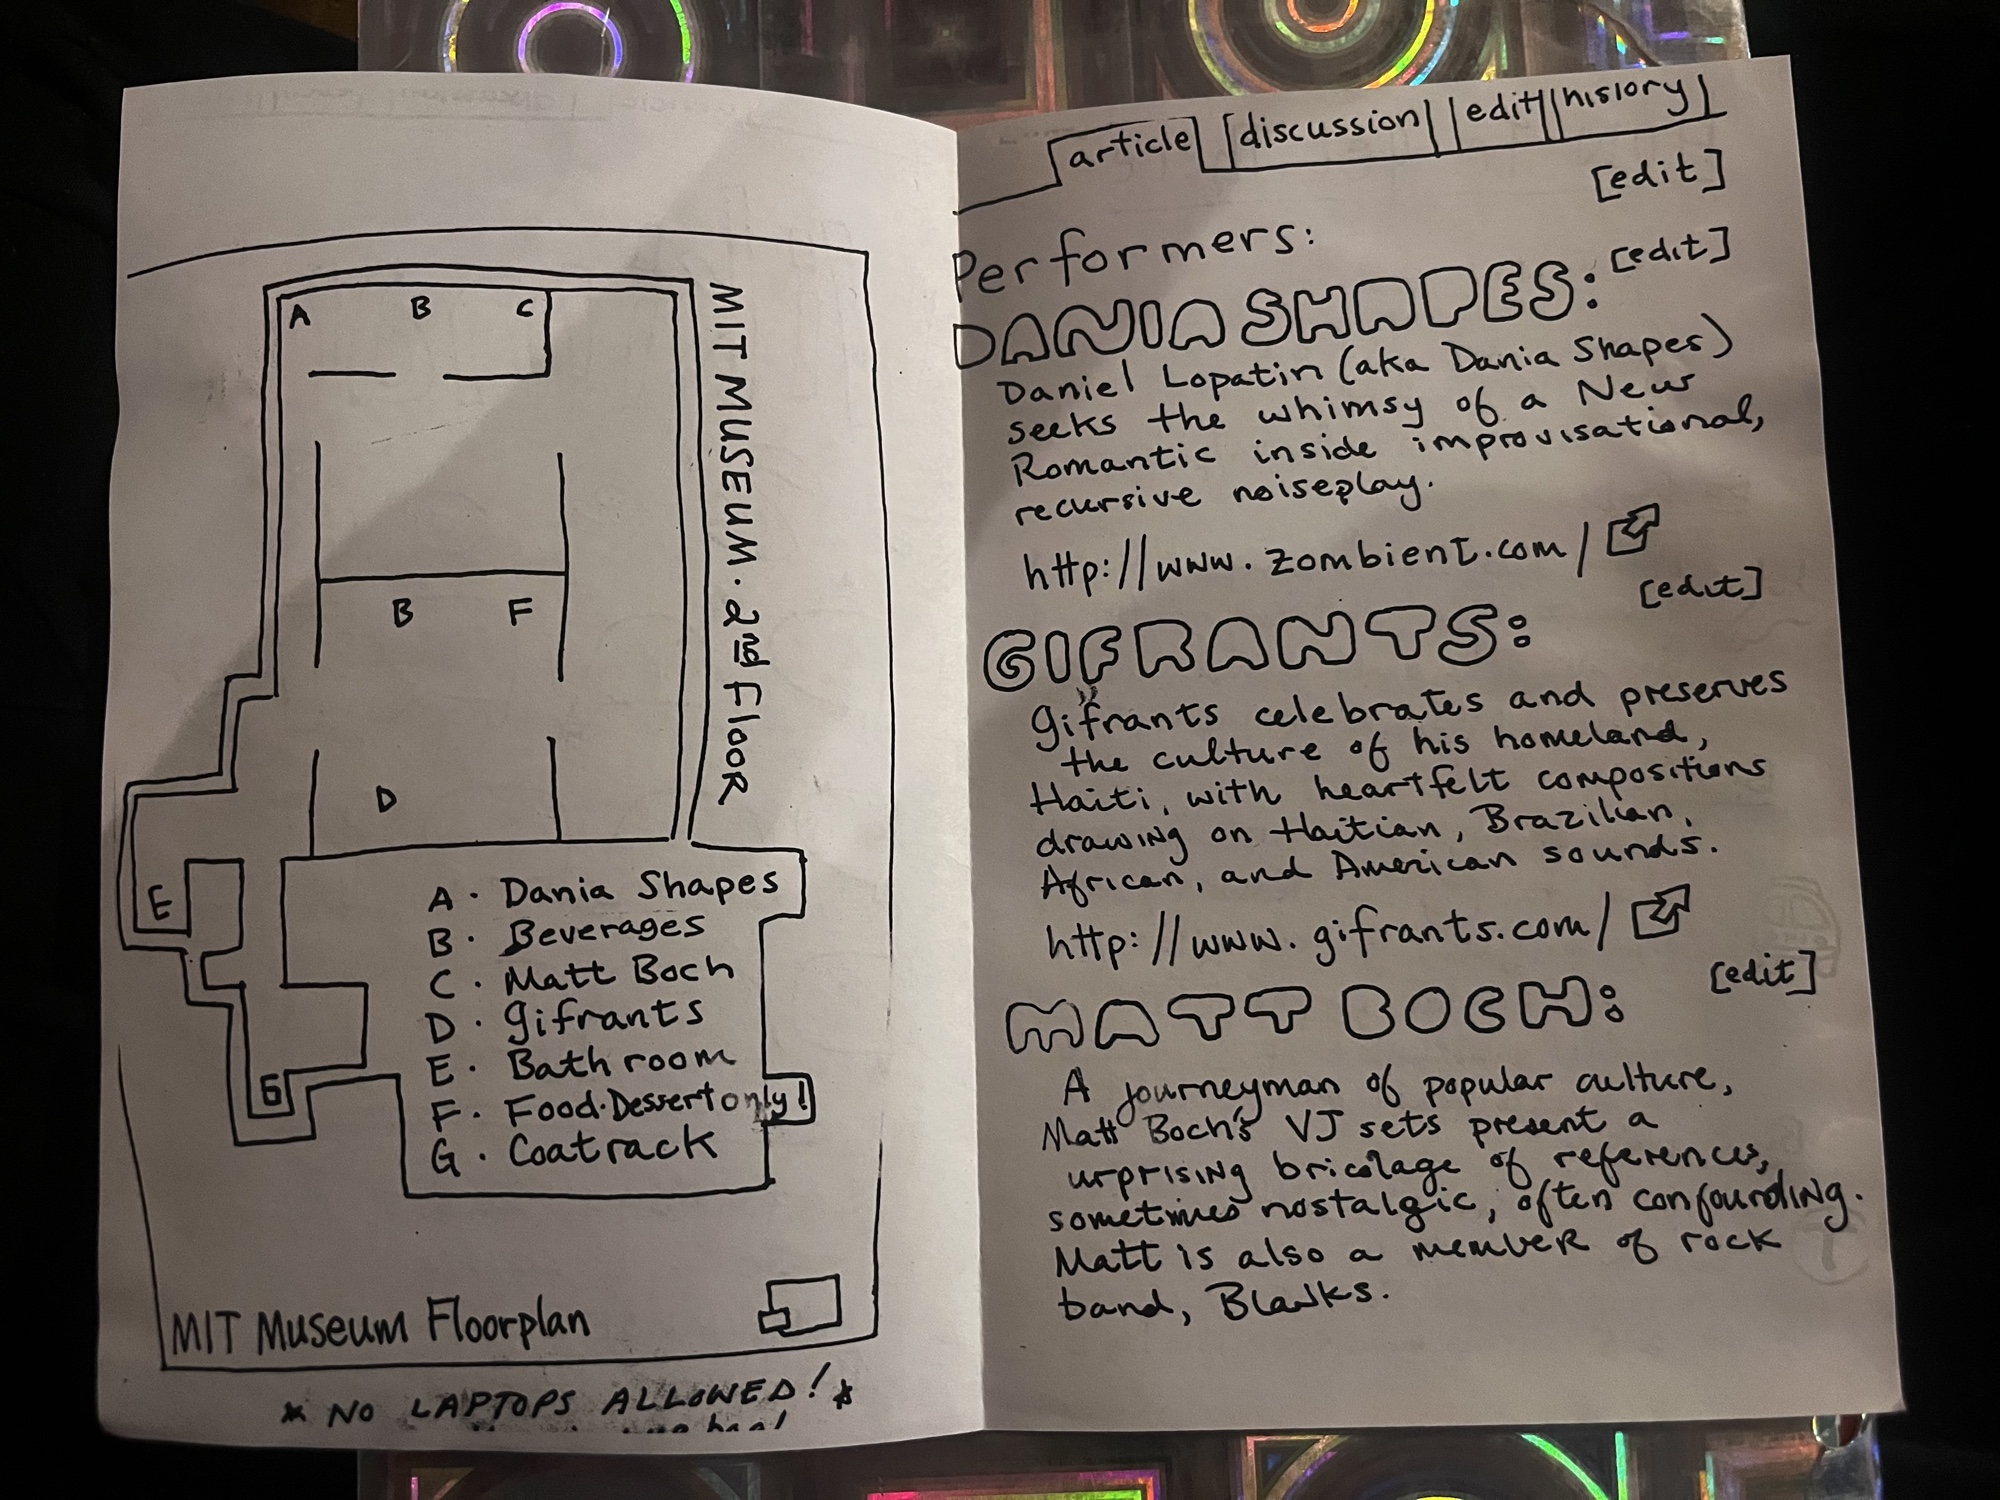 A B C
B F
D
E
G
MIT MUSEUM · 2nd FLOOR
A · Dania Shapes
B · Beverages
C · Matt Boch
D · Gifrants
E · Bathroom
F · Food·Dessert only!
G · Coatrack
MIT Museum Floorplan
* NO LAPTOPS ALLOWED! *
article discussion edit history
[edit]
Performers:
DANIA SHAPES: [edit]
Daniel Lopatin (aka Dania Shapes)
seeks the whimsy of a New
Romantic inside improvisational,
recursive noiseplay.
http://www.zombient.com/
[edit]
GIFRANTS:
Gifrants celebrates and preserves
the culture of his homeland,
Haiti, with heartfelt compositions
drawing on Haitian, Brazilian,
African, and American sounds.
http://www.gifrants.com/
[edit]
MATT BOCH:
A journeyman of popular culture,
Matt Boch's VJ sets present a
urprising bricolage of references,
sometimes nostalgic, often confounding.
Matt is also a member of rock
band, Blanks.